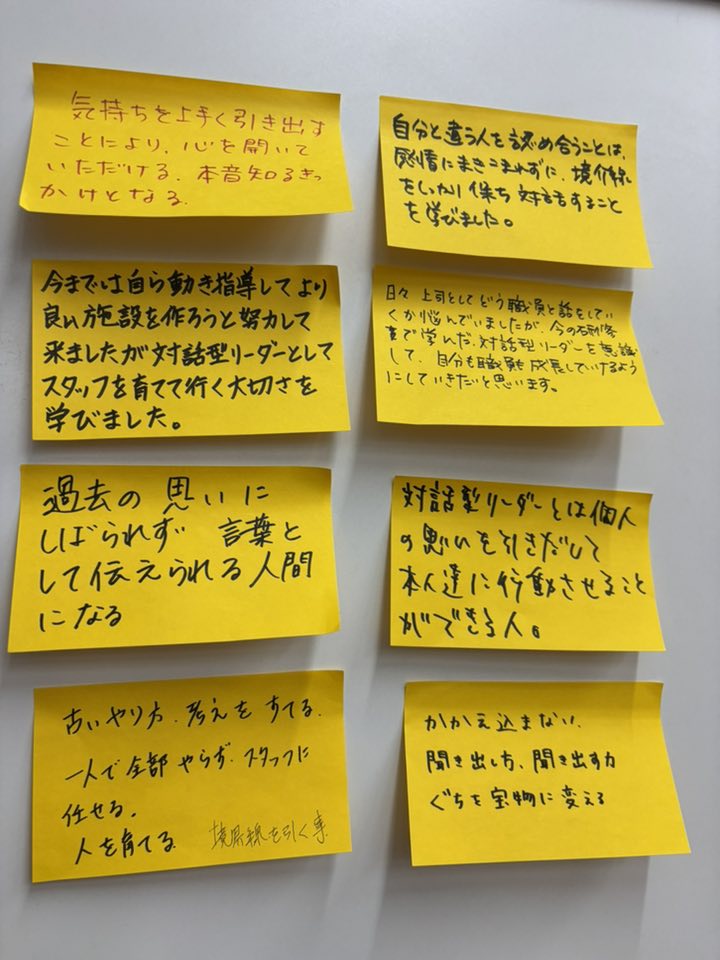 気持ちを上手く引き出す
ことにより、心を開いて
いただける、本音知るきっ
かけとなる。
自分と違う人を認め合うことは、
感情にまきこまれずに、境界線
をしっかり保ち対話すること
を学びました。
今までは自ら動き指導してより
良い施設を作ろうと努力して
来ましたが対話型リーダーとして
スタッフを育てて行く大切さを
学びました。
日々上司としてどう職員と話をしてい
くか悩んでいましたが、今の研修
で学んだ対話型リーダーを意識
して、自分も職員も成長していけるよう
にしていきたいと思います。
過去の思いに
しばられず 言葉と
して伝えられる人間
になる
対話型リーダーとは個人
の思いを引きだして
本人達に行動させること
ができる人。
古いやり方、考えをすてる、
一人で全部やらず、スタッフに
任せる。
人を育てる 境界線を引く事
かかえ込まない、
聞き出し方、聞き出す力
ぐちを宝物に変える